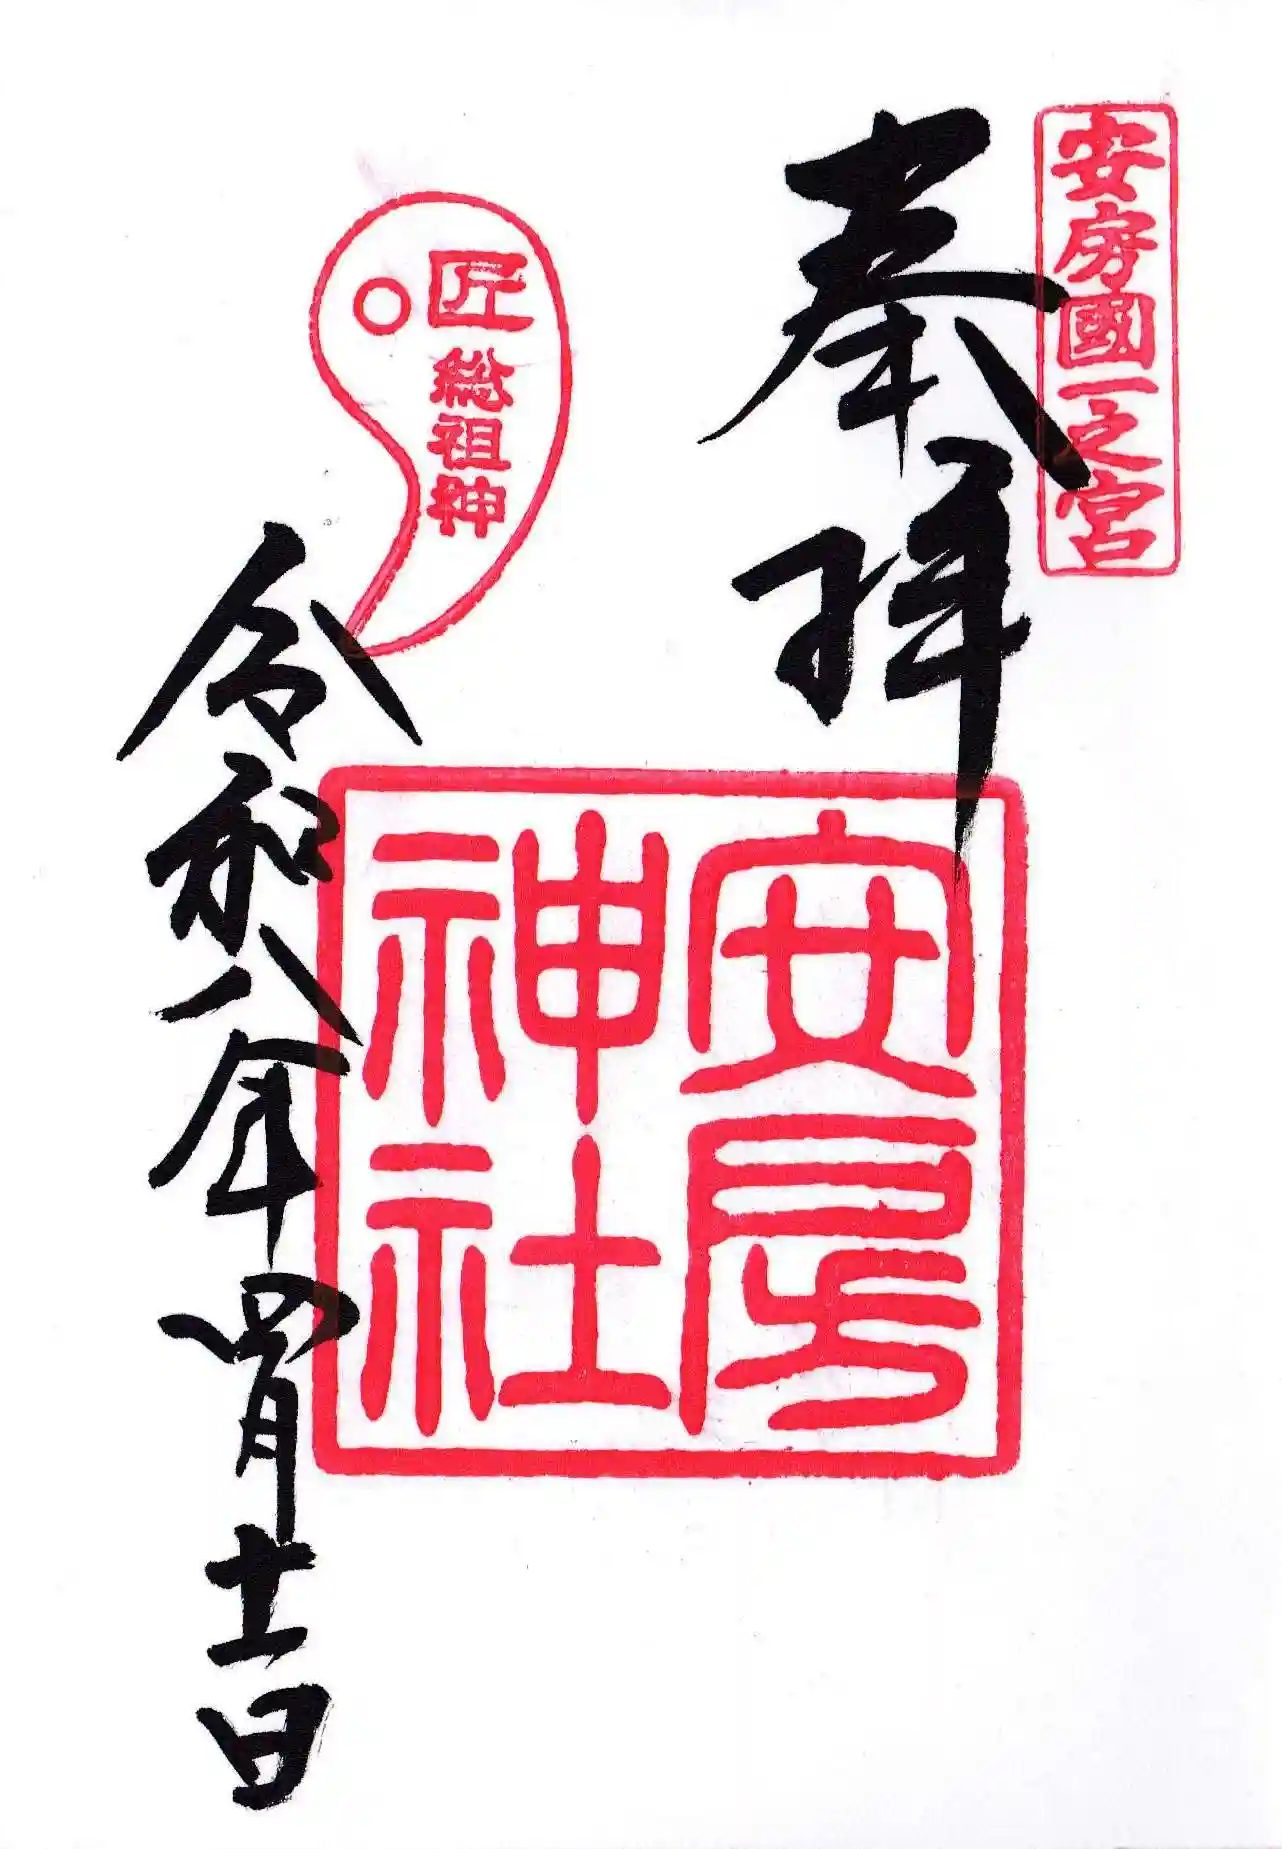 安房國一之宮
奉拝
安房
神社
匠総祖神
令和八年四月十一日